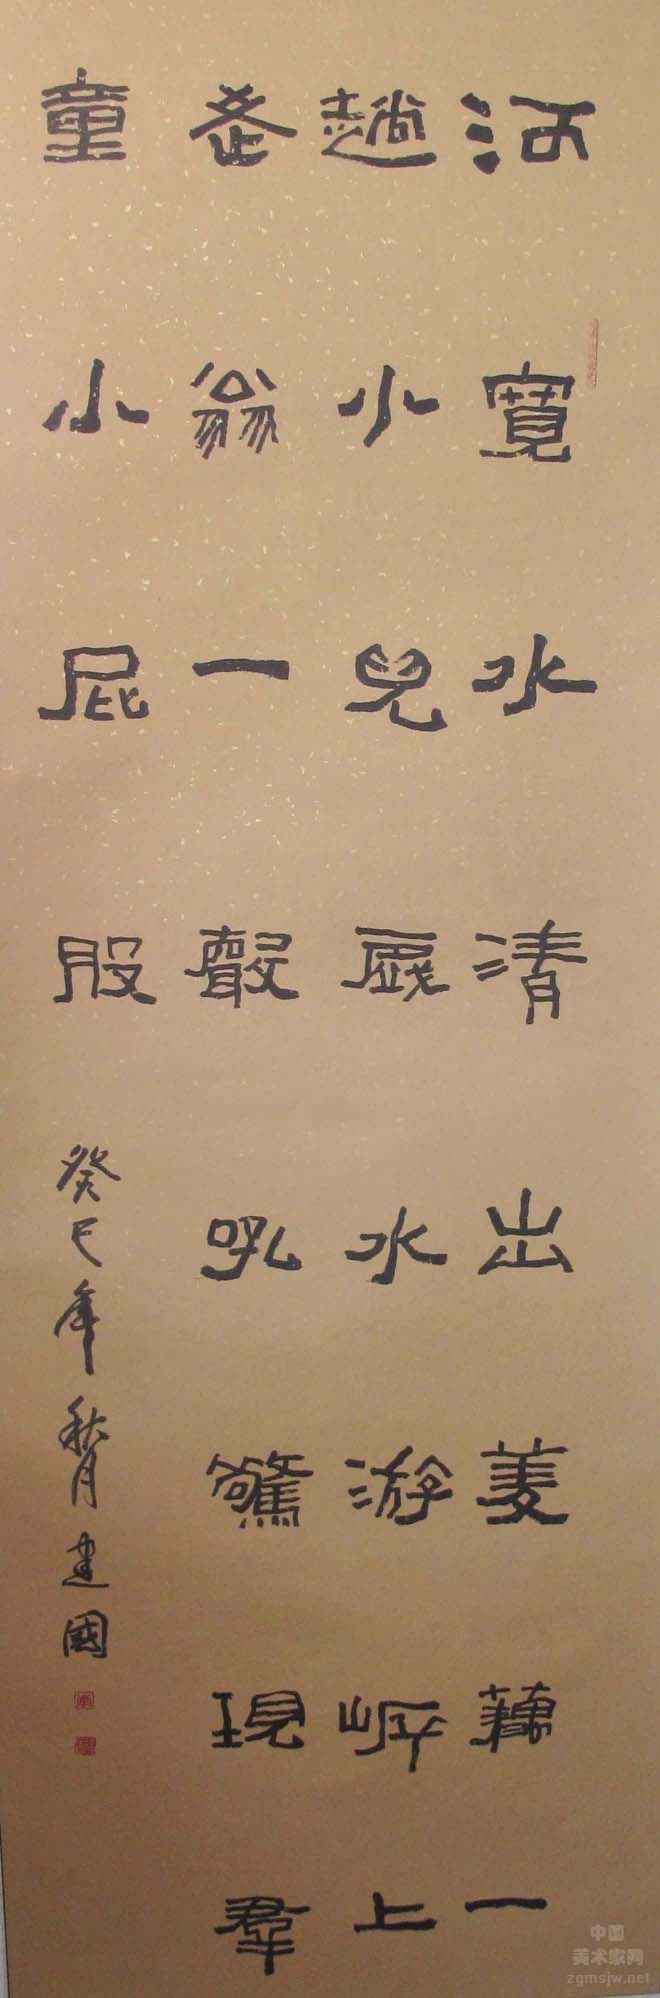 河寬水清出美藕一
趟小兒戲水游岸上
老翁一聲吼驚現羣
童小屁股
癸巳年秋月建國
中国
美术家网
zgmsjw.net